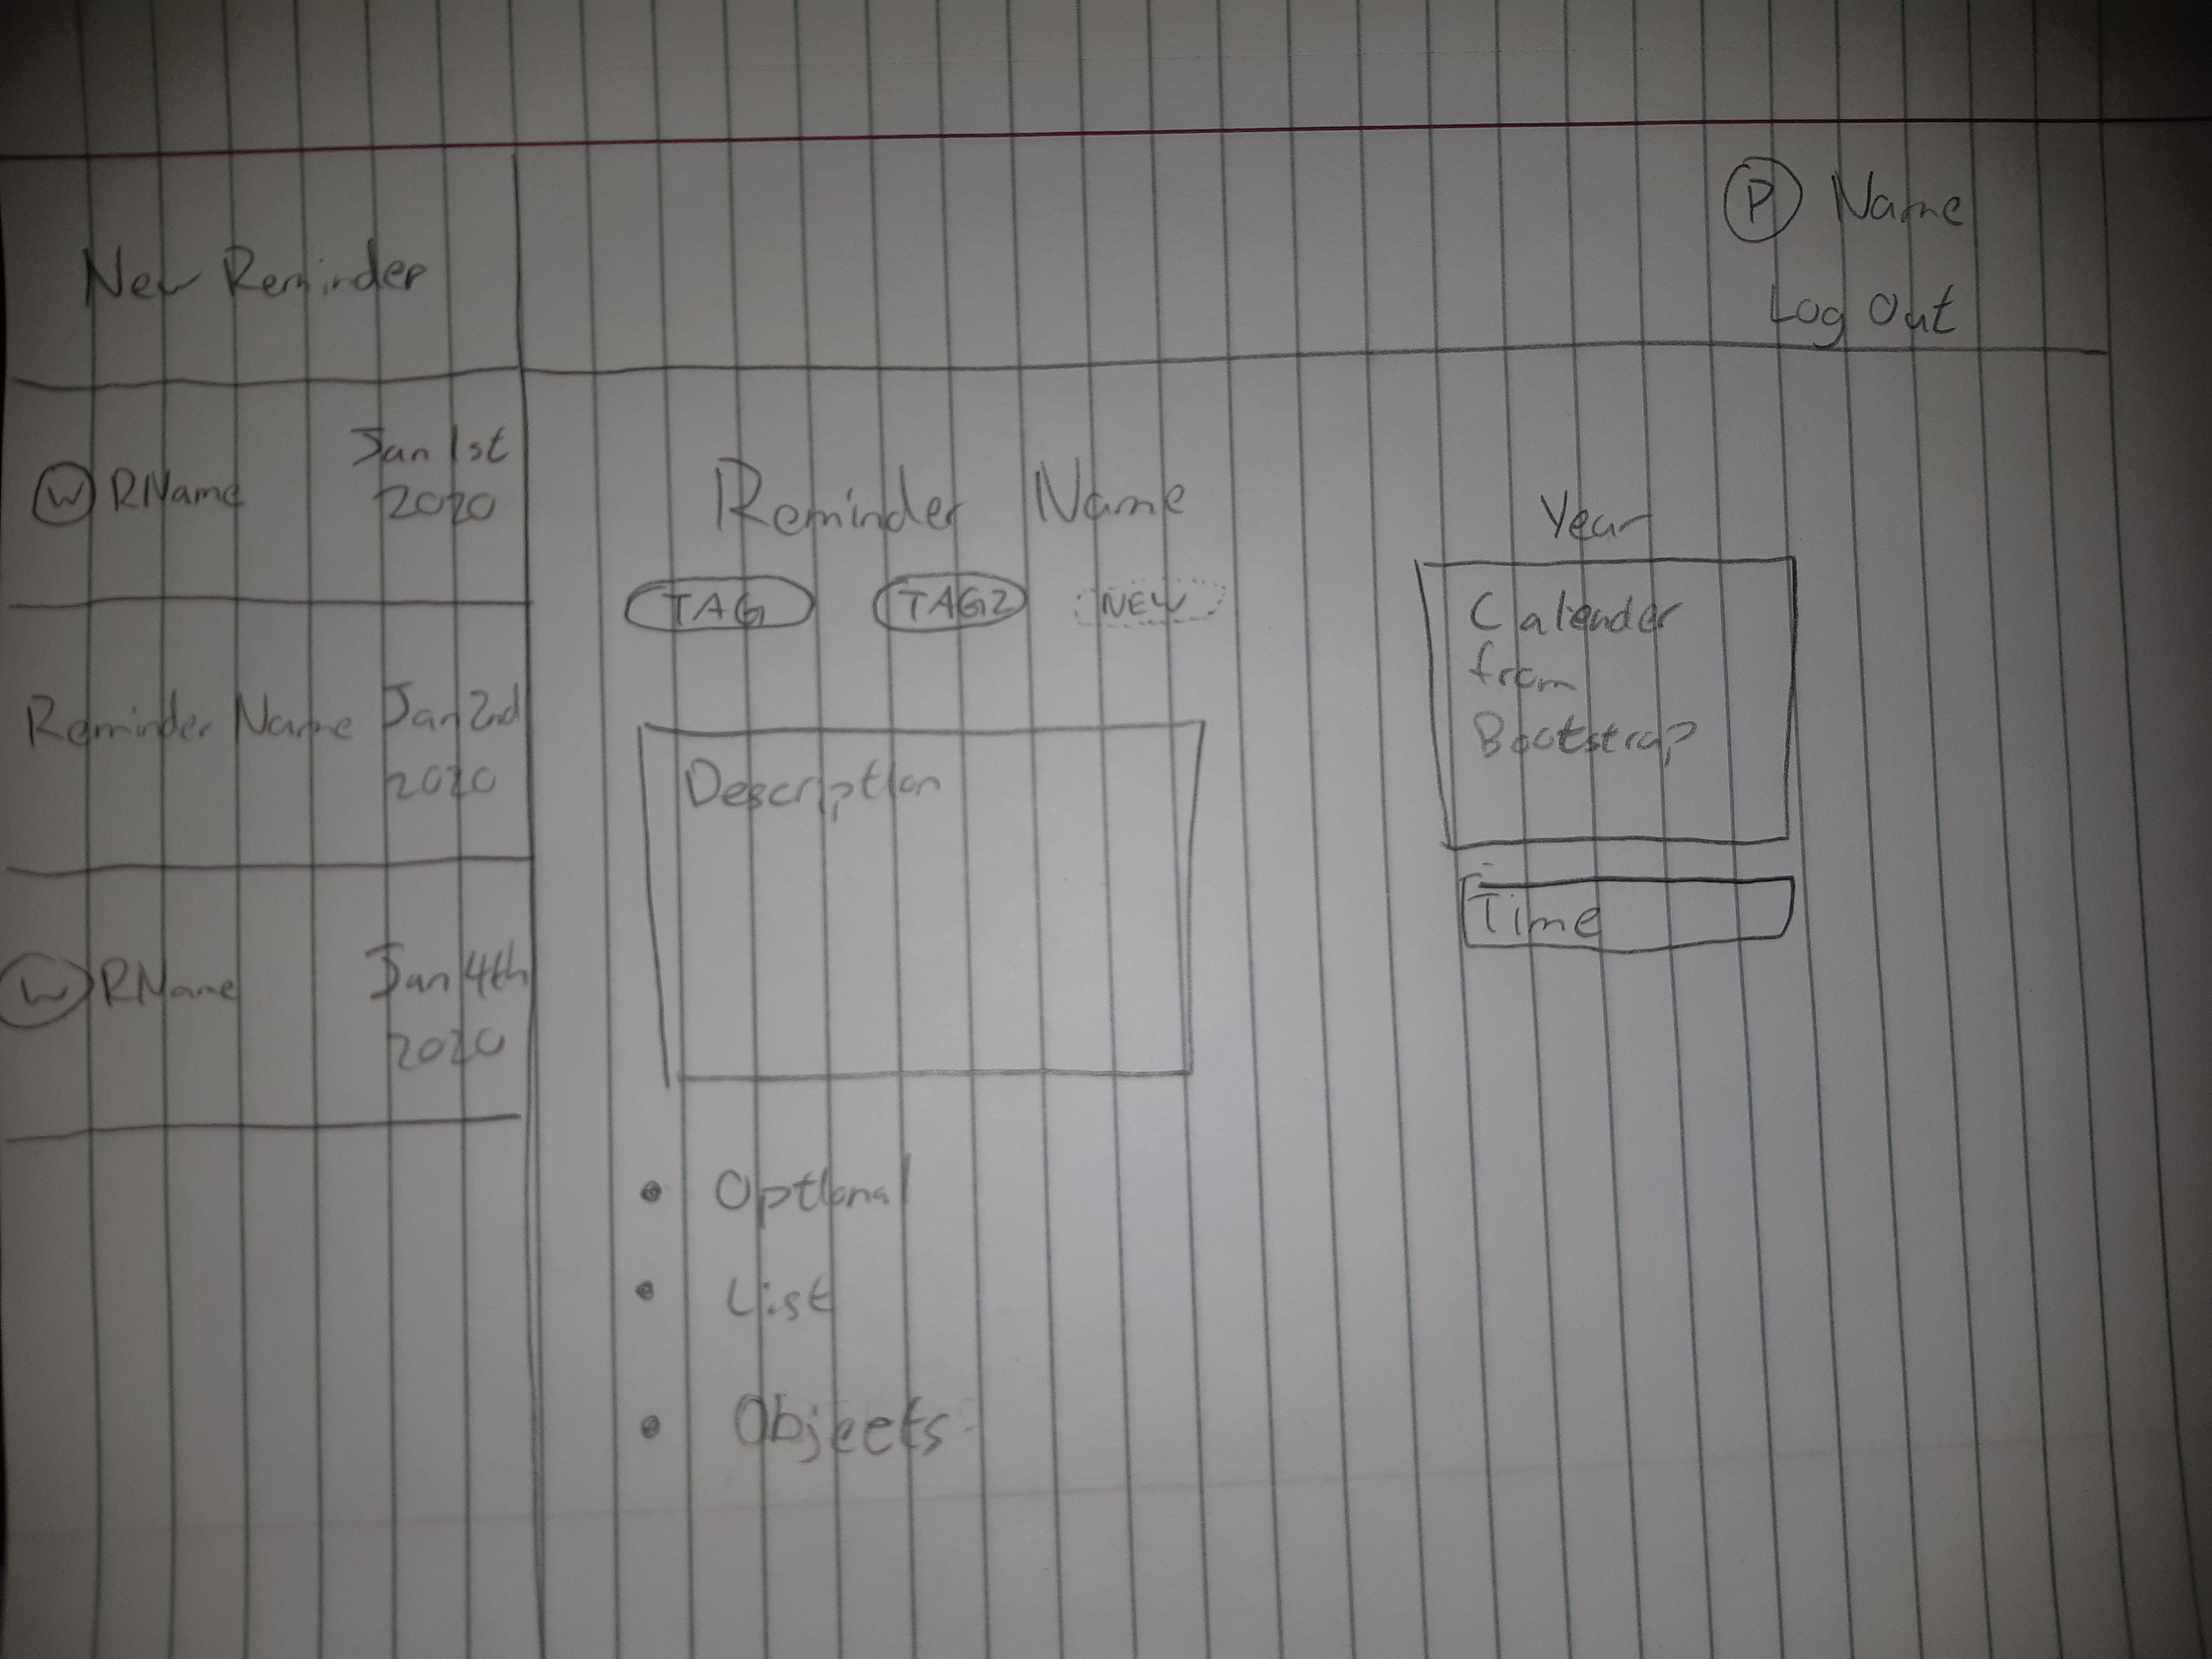 New Reminder
P Name
Log Out
W RName Jan 1st
2020
Reminder Name Jan 2nd
2020
W RName Jan 4th
2020
Reminder Name
TAG TAG2 NEW
Description
• Optional
• List
• Objects
Year
Calendar
from
Bootstrap
Time